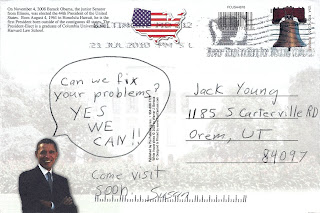 On November 4, 2008 Barack Obama, the junior Senator
from Illinois, was elected the 44th President of the United
States. Born August 4, 1961 in Honolulu Hawaii, he is the
first President born outside of the contiguous 48 states. The
President-Elect is a graduate of Columbia University and
Harvard Law School
21 JUL 2010 PM 5 L
Can we fix
your problems?
YES
WE
CAN!!
Come visit
soon.
Susan
Jack Young
1185 S Carterville RD
Orem, UT
84097